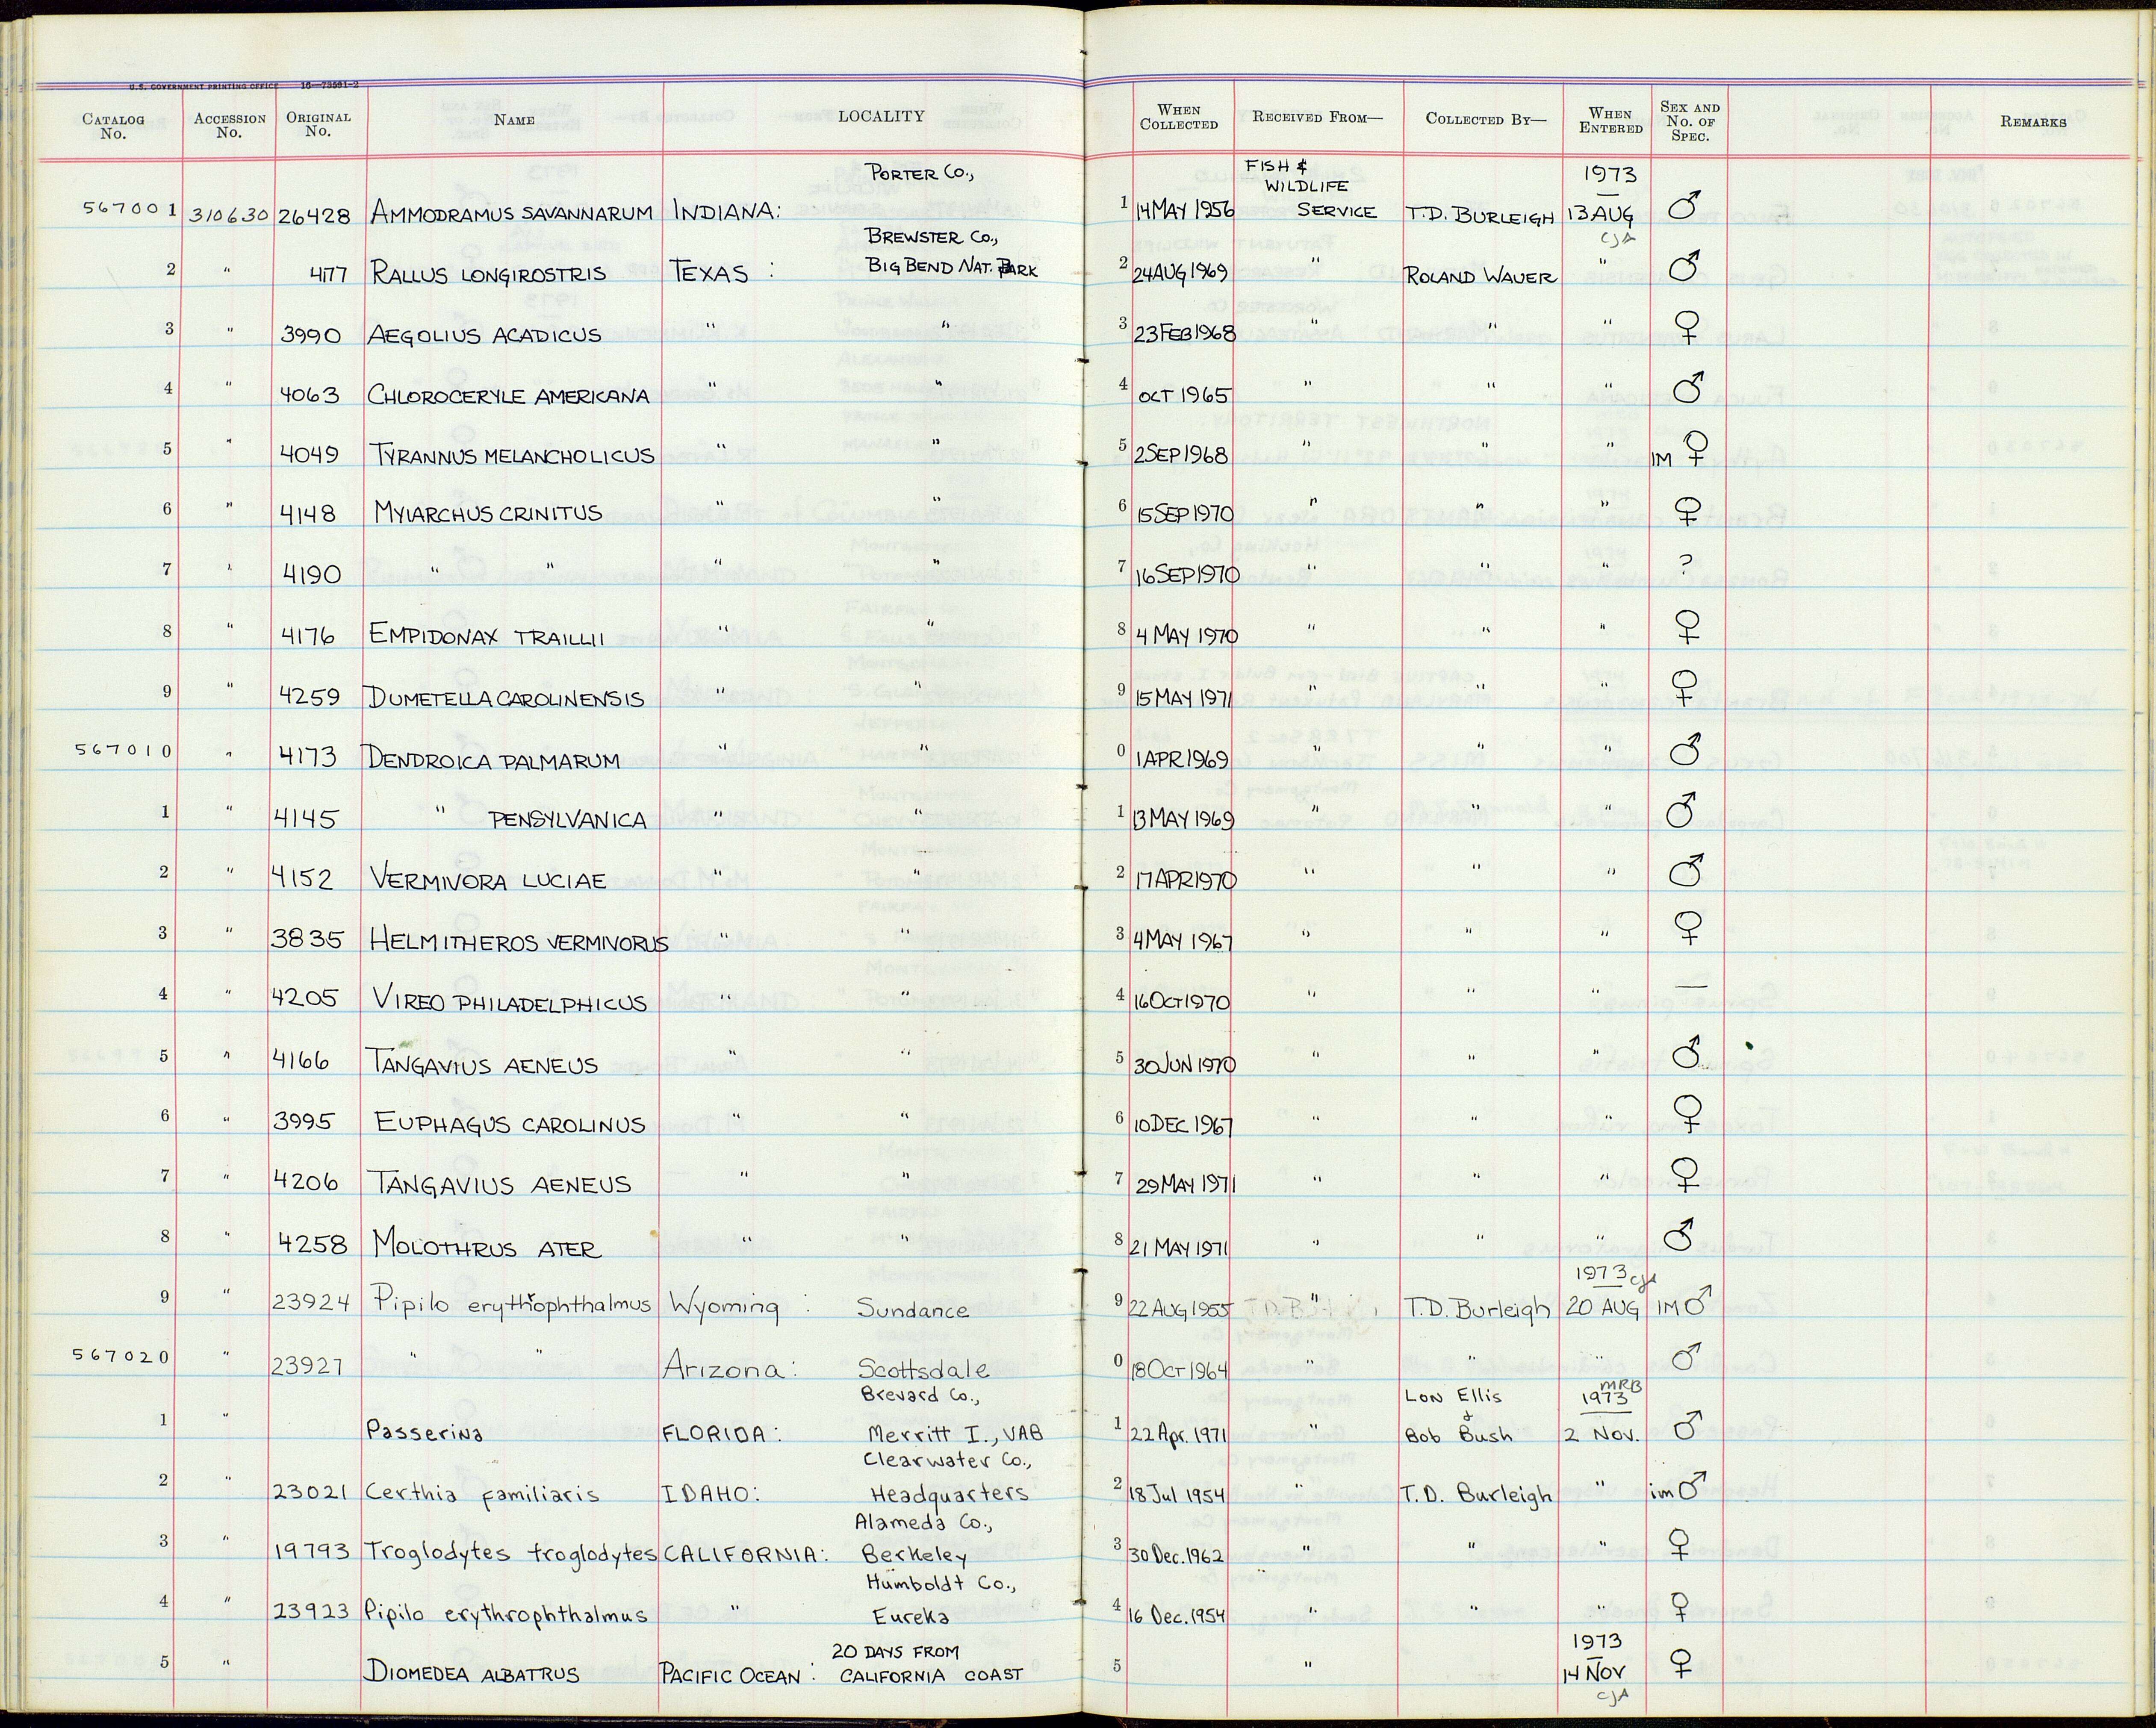 U.S. GOVERNMENT PRINTING OFFICE 16—73591-2
CATALOG No. ACCESSION No. ORIGINAL No. NAME LOCALITY WHEN COLLECTED RECEIVED FROM— COLLECTED BY— WHEN ENTERED SEX AND No. OF SPEC. REMARKS
PORTER CO., FISH & WILDLIFE 1973
567001 310630 26428 AMMODRAMUS SAVANNARUM INDIANA: 1 14 MAY 1956 SERVICE T.D. BURLEIGH 13 AUG ♂
BREWSTER CO., CJA
2 " 477 RALLUS LONGIROSTRIS TEXAS : BIG BEND NAT. PARK 2 24 AUG 1969 " ROLAND WAUER " ♂
3 " 3990 AEGOLIUS ACADICUS " " 3 23 FEB 1968 " " " ♀
4 " 4063 CHLOROCERYLE AMERICANA " " 4 OCT 1965 " " " ♂
5 " 4049 TYRANNUS MELANCHOLICUS " " 5 2 SEP 1968 " " " IM ♀
6 " 4148 MYIARCHUS CRINITUS " " 6 15 SEP 1970 " " " ♀
7 " 4190 " " " " 7 16 SEP 1970 " " " ?
8 " 4176 EMPIDONAX TRAILLII " " 8 4 MAY 1970 " " " ♀
9 " 4259 DUMETELLA CAROLINENSIS " " 9 15 MAY 1971 " " " ♀
567010 " 4173 DENDROICA PALMARUM " " 0 1 APR 1969 " " " ♂
1 " 4145 " PENSYLVANICA " " 1 13 MAY 1969 " " " ♂
2 " 4152 VERMIVORA LUCIAE " " 2 17 APR 1970 " " " ♂
3 " 3835 HELMITHEROS VERMIVORUS " " 3 4 MAY 1967 " " " ♀
4 " 4205 VIREO PHILADELPHICUS " " 4 16 OCT 1970 " " " —
5 " 4166 TANGAVIUS AENEUS " " 5 30 JUN 1970 " " " ♂
6 " 3995 EUPHAGUS CAROLINUS " " 6 10 DEC 1967 " " " ♀
7 " 4206 TANGAVIUS AENEUS " " 7 29 MAY 1971 " " " ♀
8 " 4258 MOLOTHRUS ATER " " 8 21 MAY 1971 " " " ♂
1973 CJA
9 " 23924 Pipilo erythrophthalmus Wyoming : Sundance 9 22 AUG 1955 " T.D. Burleigh 20 AUG IM ♂
567020 " 23927 " " Arizona : Scottsdale 0 18 OCT 1964 " " " ♂
Brevard Co., Lon Ellis 1973 MRB
1 " Passerina FLORIDA : Merritt I., VAB 1 22 Apr. 1971 " & Bob Bush 2 Nov. ♂
Clearwater Co.,
2 " 23021 Certhia familiaris IDAHO: Headquarters 2 18 Jul 1954 " T.D. Burleigh " im ♂
Alameda Co.,
3 " 19793 Troglodytes troglodytes CALIFORNIA: Berkeley 3 30 Dec. 1962 " " " ♀
Humboldt Co.,
4 " 23923 Pipilo erythrophthalmus " Eureka 4 16 Dec. 1954 " " " ♀
20 DAYS FROM 1973
5 " DIOMEDEA ALBATRUS PACIFIC OCEAN : CALIFORNIA COAST 5 " 14 NOV ♀
CJA